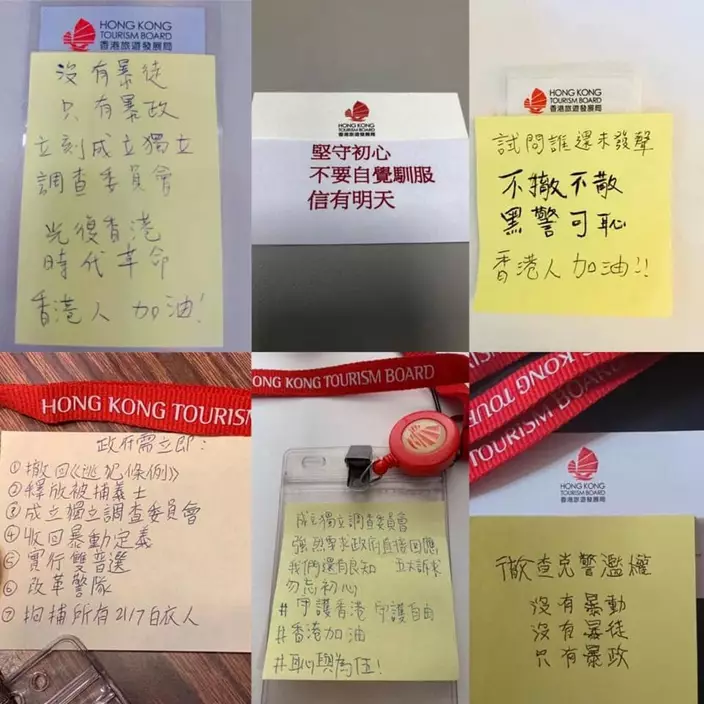 HONG KONG
TOURISM BOARD
香港旅遊發展局
沒有暴徒
只有暴政
立刻成立獨立
調查委員會
光復香港
時代革命
香港人 加油!
HONG KONG
TOURISM BOARD
香港旅遊發展局
堅守初心
不要自覺馴服
信有明天
HONG KONG
TOURISM BOARD
香港旅遊發展局
試問誰還未發聲
不撤不散
黑警可恥
香港人加油!!
HONG KONG TOURISM
政府需立即:
①撤回《逃犯條例》
②釋放被捕義士
③成立獨立調查委員會
④收回暴動定義
⑤實行雙普選
⑥改革警隊
⑦拘捕所有2117白衣人
HONG KONG TOURISM BOARD
成立獨立調查委員會
強烈要求政府直接回應
我們還有良知 五大訴求
勿忘初心
#守護香港 守護自由
#香港加油
#恥與為伍!
HONG KONG TOU
TOURISM BOARD
HONG KONG
TOURISM BOARD
香港旅遊發展局
徹查克警濫權
沒有暴動
沒有暴徒
只有暴政